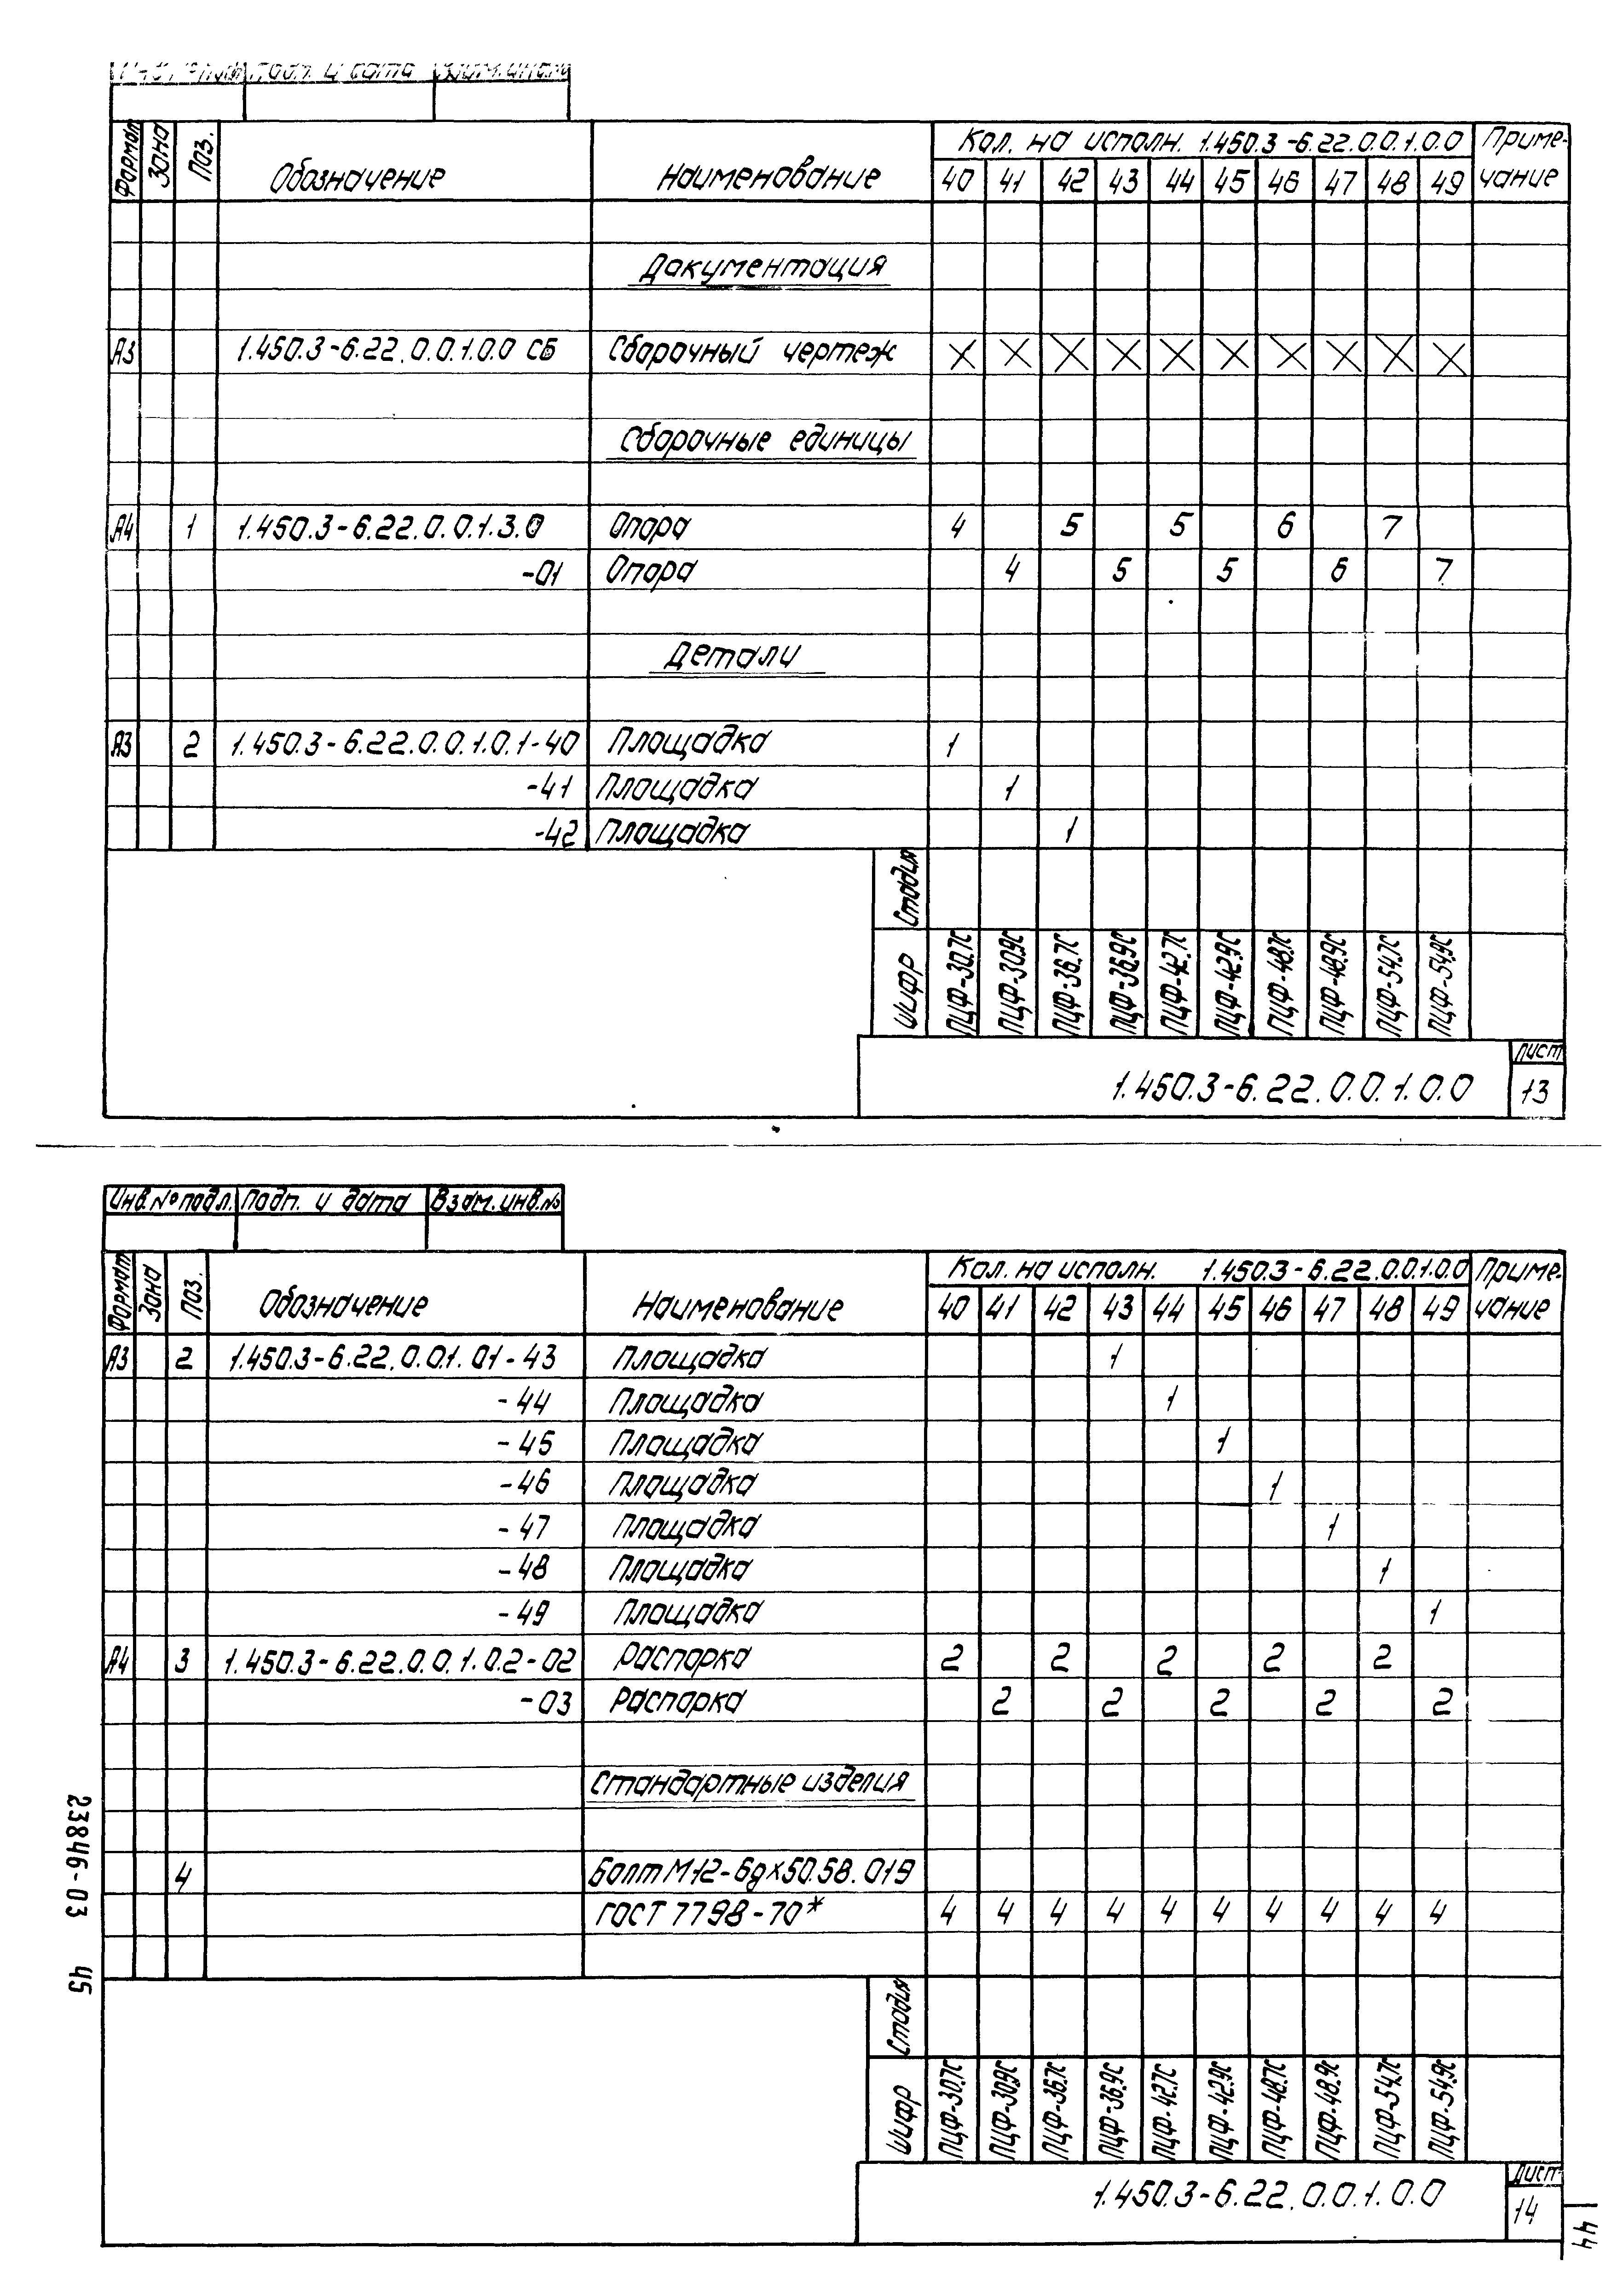 Подп. и дата
Формат Зона Поз. Обозначение Наименование Кол. на исполн. 1.450.3-6.22.0.0.1.0.0 Приме-
40 41 42 43 44 45 46 47 48 49 чание
Документация
А3 1.450.3-6.22.0.0.1.0.0 СБ Сборочный чертеж X X X X X X X X X X
Сборочные единицы
А4 1 1.450.3-6.22.0.0.1.3.0 Опора 4 5 5 6 7
-01 Опора 4 5 5 6 7
Детали
А3 2 1.450.3-6.22.0.0.1.0.1-40 Площадка 1
-41 Площадка 1
-42 Площадка 1
Стадия
Шифр ПЦФ-30.7С ПЦФ-30.9С ПЦФ-36.7С ПЦФ-36.9С ПЦФ-42.7С ПЦФ-42.9С ПЦФ-48.7С ПЦФ-48.9С ПЦФ-54.7С ПЦФ-54.9С
Лист
1.450.3-6.22.0.0.1.0.0 13
Инв.№ подл. Подп. и дата Взам.инв.№
Формат Зона Поз. Обозначение Наименование Кол. на исполн. 1.450.3-6.22.0.0.1.0.0 Приме-
40 41 42 43 44 45 46 47 48 49 чание
А3 2 1.450.3-6.22.0.0.1.01-43 Площадка 1
-44 Площадка 1
-45 Площадка 1
-46 Площадка 1
-47 Площадка 1
-48 Площадка 1
-49 Площадка 1
А4 3 1.450.3-6.22.0.0.1.0.2-02 Распорка 2 2 2 2 2
-03 Распорка 2 2 2 2 2
Стандартные изделия
4 Болт М12-6gх50.58.019
ГОСТ 7798-70* 4 4 4 4 4 4 4 4 4 4
Стадия
Шифр ПЦФ-30.7С ПЦФ-30.9С ПЦФ-36.7С ПЦФ-36.9С ПЦФ-42.7С ПЦФ-42.9С ПЦФ-48.7С ПЦФ-48.9С ПЦФ-54.7С ПЦФ-54.9С
Лист
1.450.3-6.22.0.0.1.0.0 14
23846-03 45
44